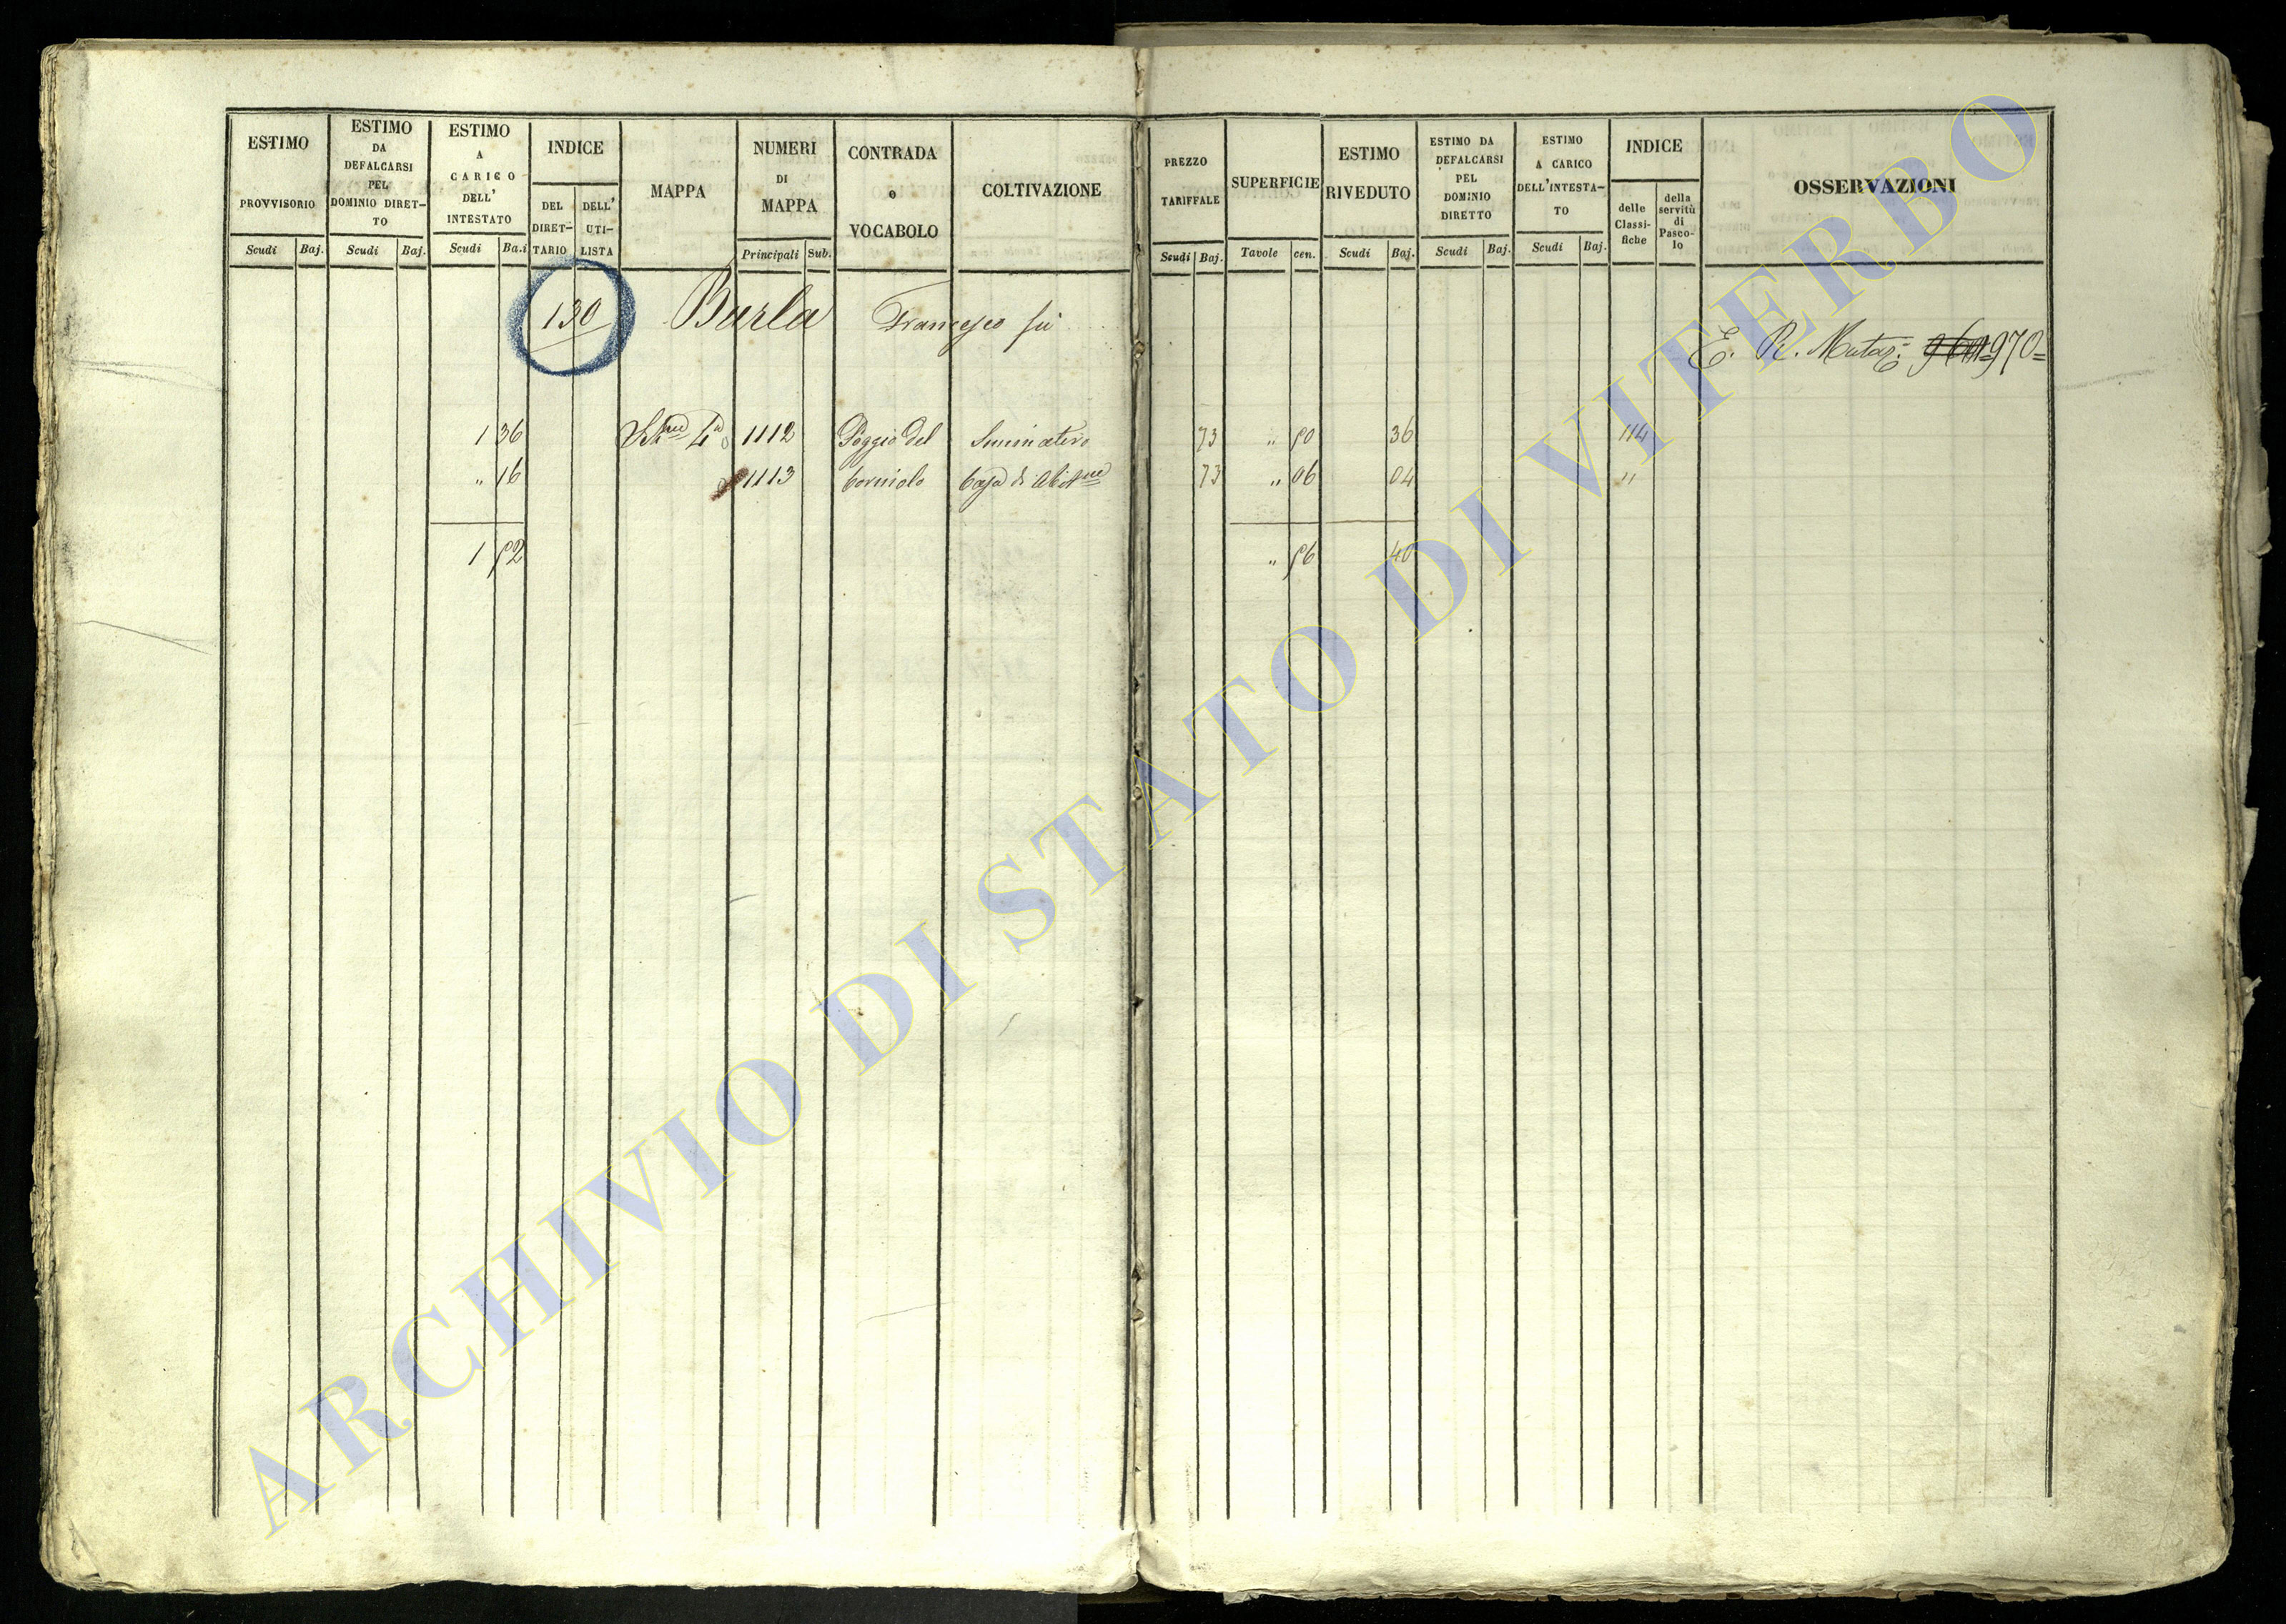 ESTIMO PROVVISORIO
Scudi Baj.
ESTIMO DA DEFALCARSI PEL DOMINIO DIRET- TO
Scudi Baj.
ESTIMO A CARICO DELL' INTESTATO
Scudi Ba.i
INDICE
DEL DIRET- TARIO
DELL' UTI- LISTA
MAPPA
NUMERI DI MAPPA
Principali Sub.
CONTRADA o VOCABOLO
COLTIVAZIONE
PREZZO TARIFFALE
Scudi Baj.
SUPERFICIE
Tavole cen.
ESTIMO RIVEDUTO
Scudi Baj.
ESTIMO DA DEFALCARSI PEL DOMINIO DIRETTO
Scudi Baj.
ESTIMO A CARICO DELL'INTESTA- TO
Scudi Baj.
INDICE
delle Classi- fiche
della servitù di Pasco- lo
OSSERVAZIONI
130 Burla Francesco fu
E. R. Mutaz: 970=
1 36 1112 Poggio del Seminativo 73 " 50 36 114
" 16 1113 Corniolo Casa di Abitne 73 " 06 04 "
1 52 " 56 40
ARCHIVIO DI STATO DI VITERBO